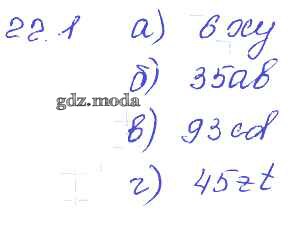 22.1 а) 6xy
б) 35ab
gdz.moda
в) 93cd
г) 45zt